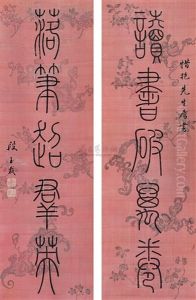 惜抱先生屬
讀書破萬卷
落筆超群英
段玉裁